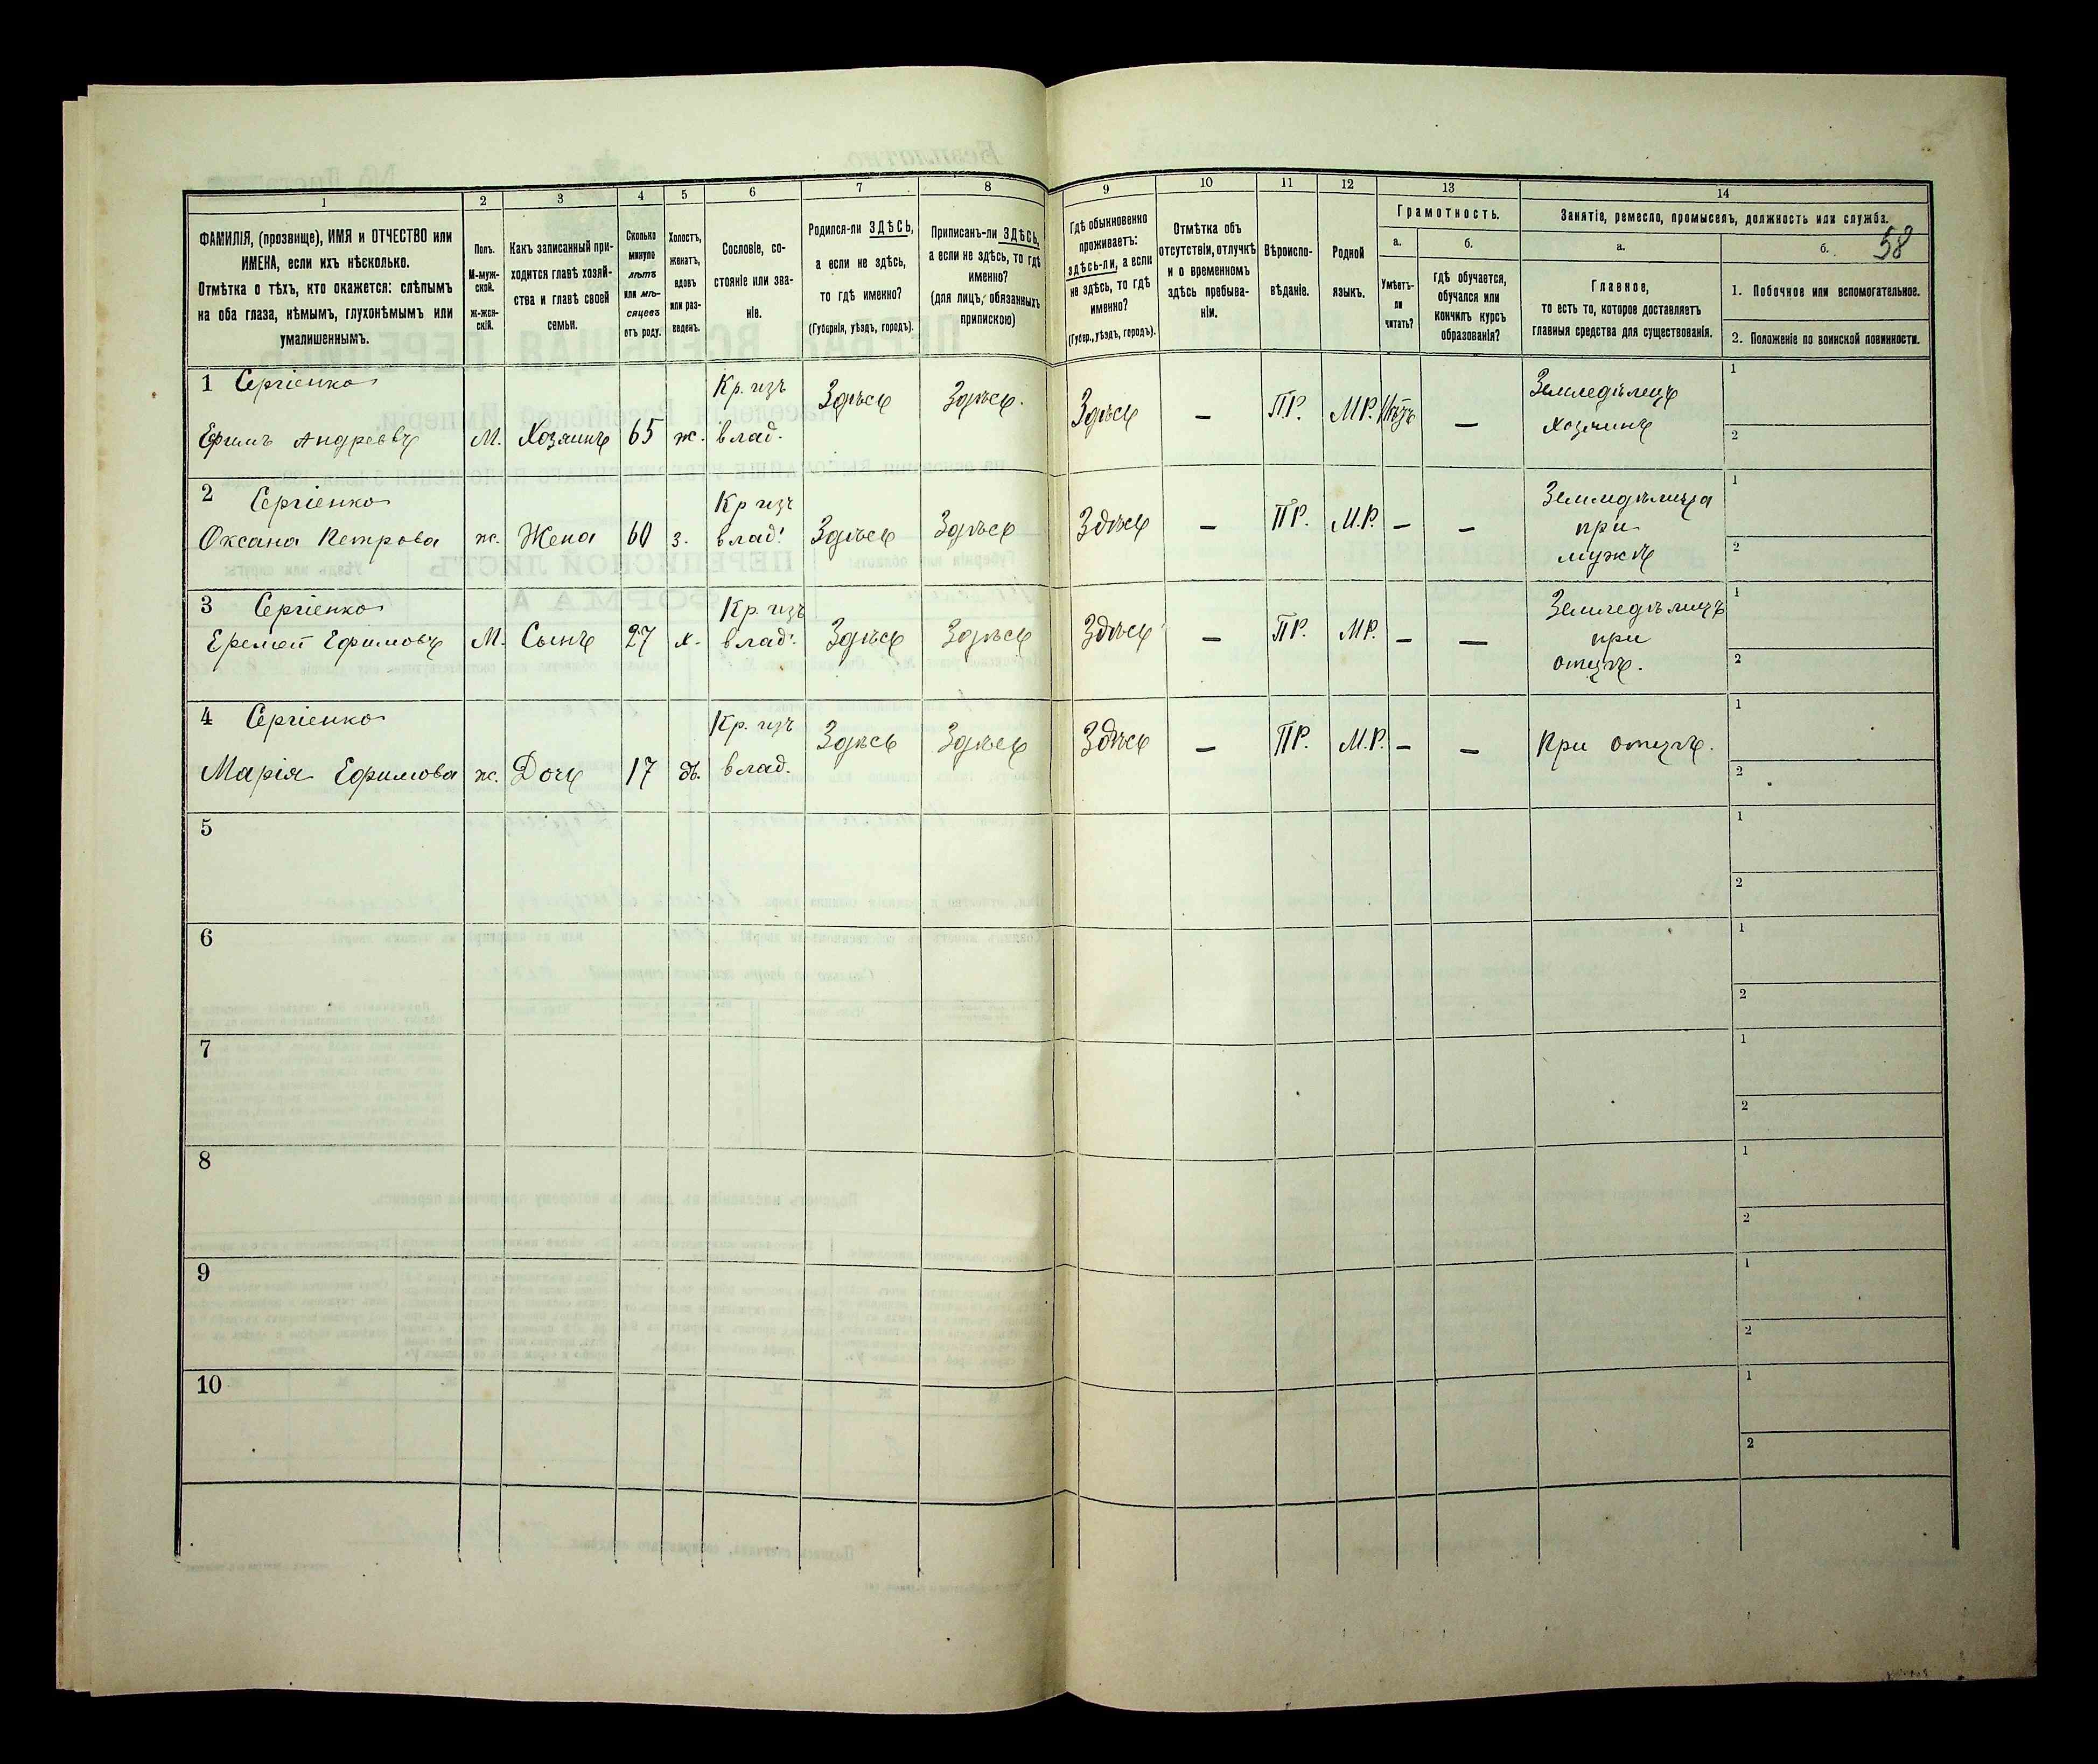 1 2 3 4 5 6 7 8 9 10 11 12 13 14
58
ФАМИЛІЯ, (прозвище), ИМЯ и ОТЧЕСТВО или
ИМЕНА, если ихъ нѣсколько.
Отмѣтка о тѣхъ, кто окажется: слѣпымъ
на оба глаза, нѣмымъ, глухонѣмымъ или
умалишеннымъ.
Полъ.
М-муж-
ской.
Ж-жен-
скій.
Какъ записанный при-
ходится главѣ хозяй-
ства и главѣ своей
семьи.
Сколько
минуло
лѣтъ
или мѣ-
сяцевъ
отъ роду.
Холостъ,
женатъ,
вдовъ
или раз-
веденъ.
Сословіе, со-
стояніе или зва-
ніе.
Родился-ли ЗДѢСЬ,
а если не здѣсь,
то гдѣ именно?
(Губернія, уѣздъ, городъ).
Приписанъ-ли ЗДѢСЬ,
а если не здѣсь, то гдѣ
именно?
(для лицъ, обязанныхъ
припискою)
Гдѣ обыкновенно
проживаетъ:
здѣсь-ли, а если
не здѣсь, то гдѣ
именно?
(Губер., уѣздъ, городъ).
Отмѣтка объ
отсутствіи, отлучкѣ
и о временномъ
здѣсь пребыва-
ніи.
Вѣроиспо-
вѣданіе.
Родной
языкъ.
Грамотность.
а.
Умѣетъ-
ли
читать?
б.
гдѣ обучается,
обучался или
кончилъ курсъ
образованія?
Занятіе, ремесло, промыселъ, должность или служба.
а.
Главное,
то есть то, которое доставляетъ
главныя средства для существованія.
б.
1. Побочное или вспомогательное.
2. Положеніе по воинской повинности.
1 Сергіенко
Ефимъ Андреевъ
М.
Хозяинъ
65
ж.
Кр. изъ
влад.
Здѣсь
Здѣсь.
Здѣсь
—
ПР.
МР.
—
Земледѣлецъ
хозяинъ
1
2
2 Сергіенко
Оксана Петрова
ж.
Жена
60
з.
Кр изъ
влад.
Здѣсь
Здѣсь
Здѣсь
—
ПР.
М.Р.
—
—
Земледѣлица
при
мужѣ
1
2
3 Сергіенко
Еремей Ефимовъ
М.
Сынъ
27
х.
Кр. изъ
влад.
Здѣсь
Здѣсь
Здѣсь
—
ПР.
МР.
—
—
Земледѣлецъ
при
отцѣ.
1
2
4 Сергіенко
Марія Ефимова
ж.
Дочь
17
дѣ.
Кр. изъ
влад.
Здѣсь
Здѣсь
Здѣсь
—
ПР.
М.Р.
—
—
При отцѣ.
1
2
5
1
2
6
1
2
7
1
2
8
1
2
9
1
2
10
1
2